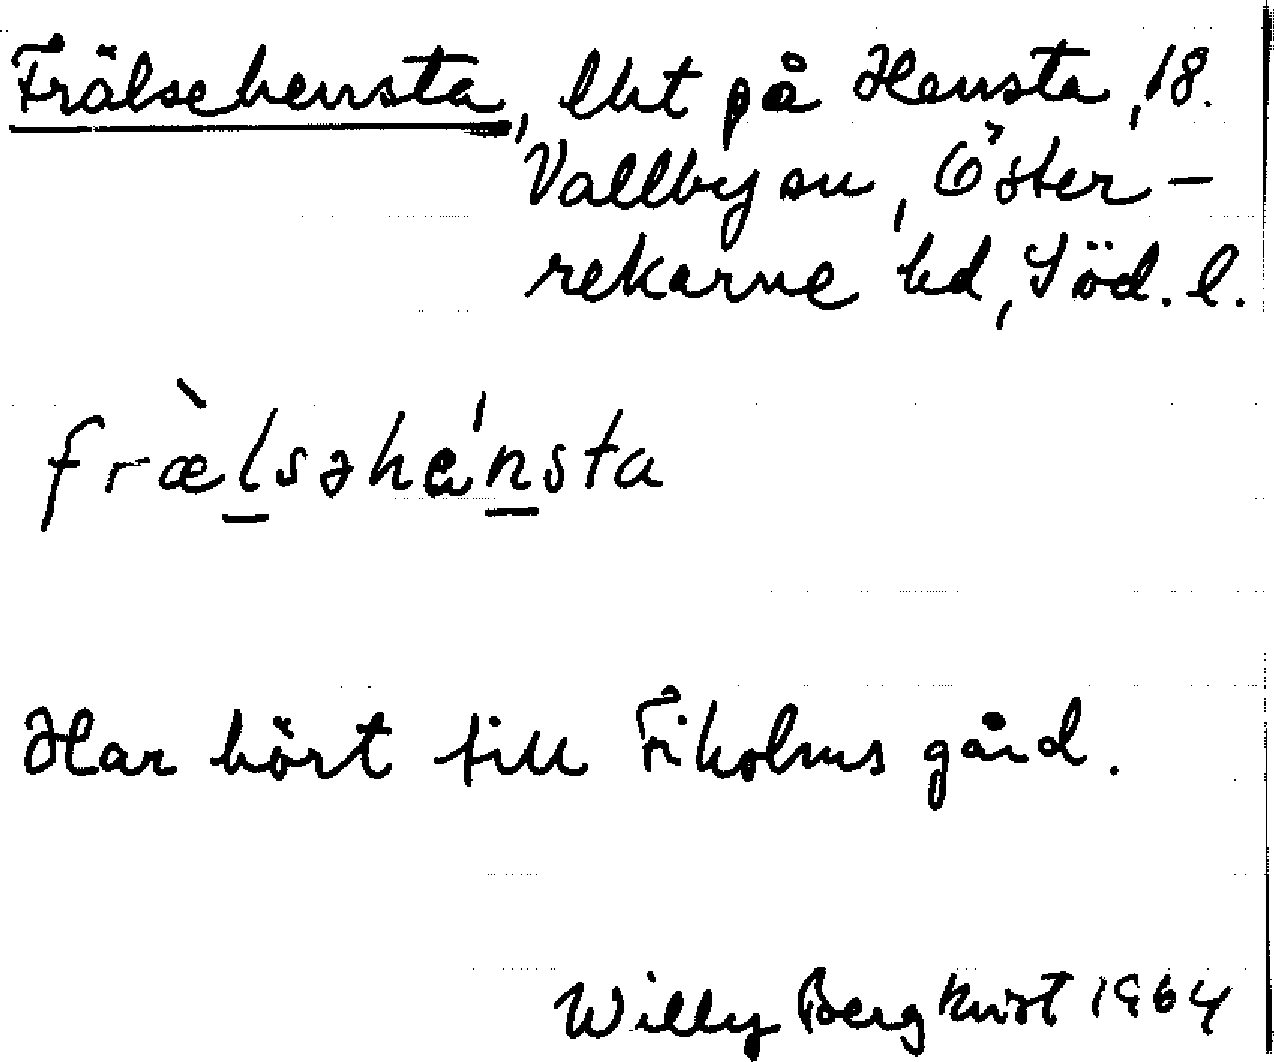 Frälsehensta, lht på Hensta, 18.
Vallby sn, Öster-
rekarne hd, Söd. l.
fræ̀lsəhe̍nsta
Har hört till Fiholms gård.
Willy Bergkvist 1964